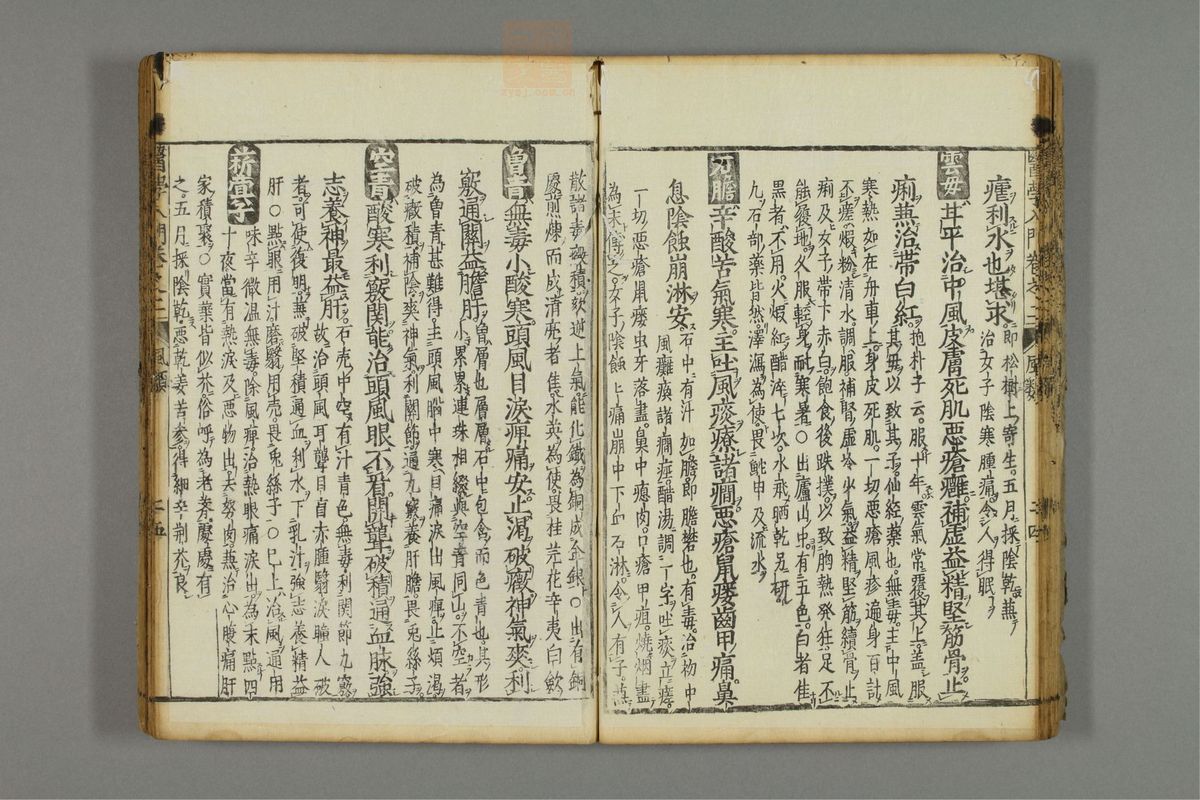 瘧利水也堪求即松樹上寄生五月採陰乾無
治女子陰寒腫痛令人得眠
雲母甘平治中風皮膚死肌惡瘡癰補虛益精堅筋骨止
痢兼治帶白紅抱朴子云服十年雲氣常覆其上盖服
其母以致其子仙經藥也無毒主中風
寒熱如在舟車上身皮死肌一切惡瘡風疹遍身百計
不瘥煆粉清水調服補腎虛冷少氣益精堅筋續骨止
痢及女子帶下赤白飽食後跌撲以致胸熱發狂足不
能履地久服輕身耐寒暑○出廬山中有五色白者佳
黑者不用火煆紅醋淬七次水飛晒乾另研
九石部藥皆然澤瀉為使畏鮀甲及流水
石膽辛酸苦氣寒主吐風痰療諸癇惡瘡鼠瘻齒甲痛鼻
息陰蝕崩淋安石中有汁如膽即膽礬也有毒治初中
風癱瘓諸癇痙醋湯調一字吐痰立瘥
一切惡瘡鼠瘻虫牙落盡鼻中瘜肉口瘡甲疽燒烟盡
為末傅之女子陰蝕上痛崩中下血石淋令人有子兼
散諸毒破積欬逆上氣能化鐵為銅成金銀○出有銅
處煎煉而成清亮者佳水英為使畏桂芫花辛夷白歛
曾青無毒小酸寒頭風目淚痺痛安止渴破癥神氣爽利
竅通關益膽肝曾層也層層石中包含而色青也其形
小累累連珠相綴與空青同山不空者
為曾青甚難得主頭風腦中寒目痛淚出風痺止煩渴
破癥積補陰爽神氣利關節通九竅養肝膽畏兔絲子
空青酸寒利竅関能治頭風眼不看開聾破積通血脉強
志養神最益肝石殼中空有汁青色無毒利関節九竅
故治頭風耳聾目盲赤腫翳淚曠人破
者可使復明兼破堅積通血利水下乳汁強志養精益
肝○點眼用汁磨翳用殼畏兔絲子○已上治風通用
菥蓂子味辛微溫無毒除風痺治熱眼痛淚出為末點四
十夜當有熱淚及惡物出去努肉兼治心腹痛肝
家積聚○實葉皆似芥俗呼為老薺處處有
之五月採陰乾惡乾姜苦參得細辛荆芥良